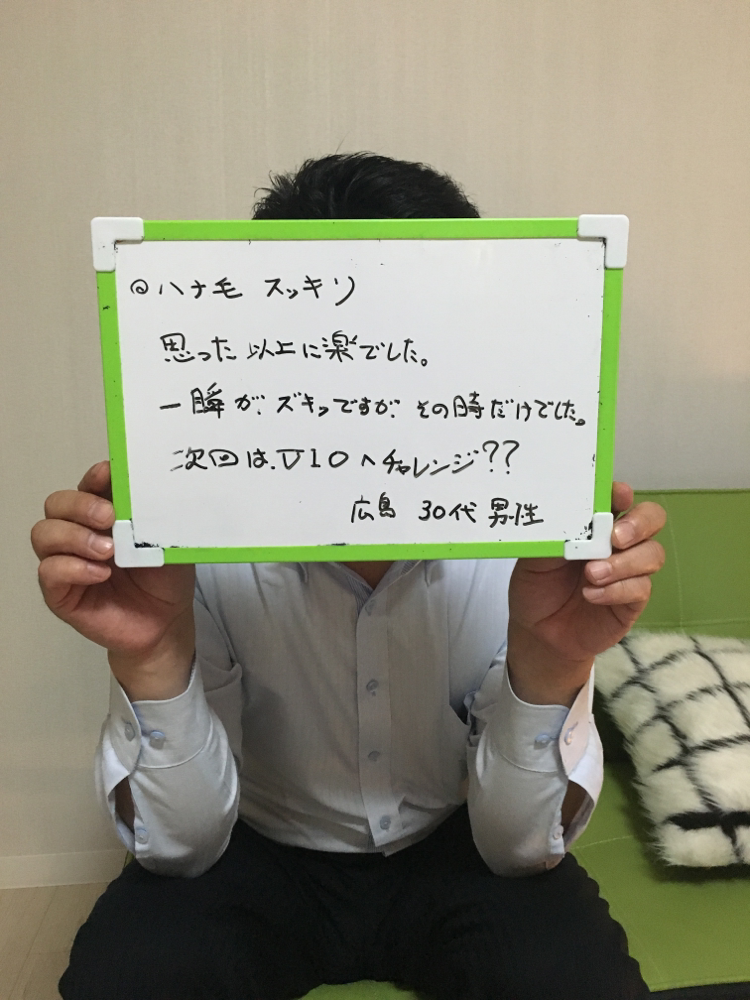 ◎ハナ毛 スッキリ
思った以上に楽でした。
一瞬が、ズキッですが、その時だけでした。
次回は、VIOへチャレンジ??
広島 30代 男性